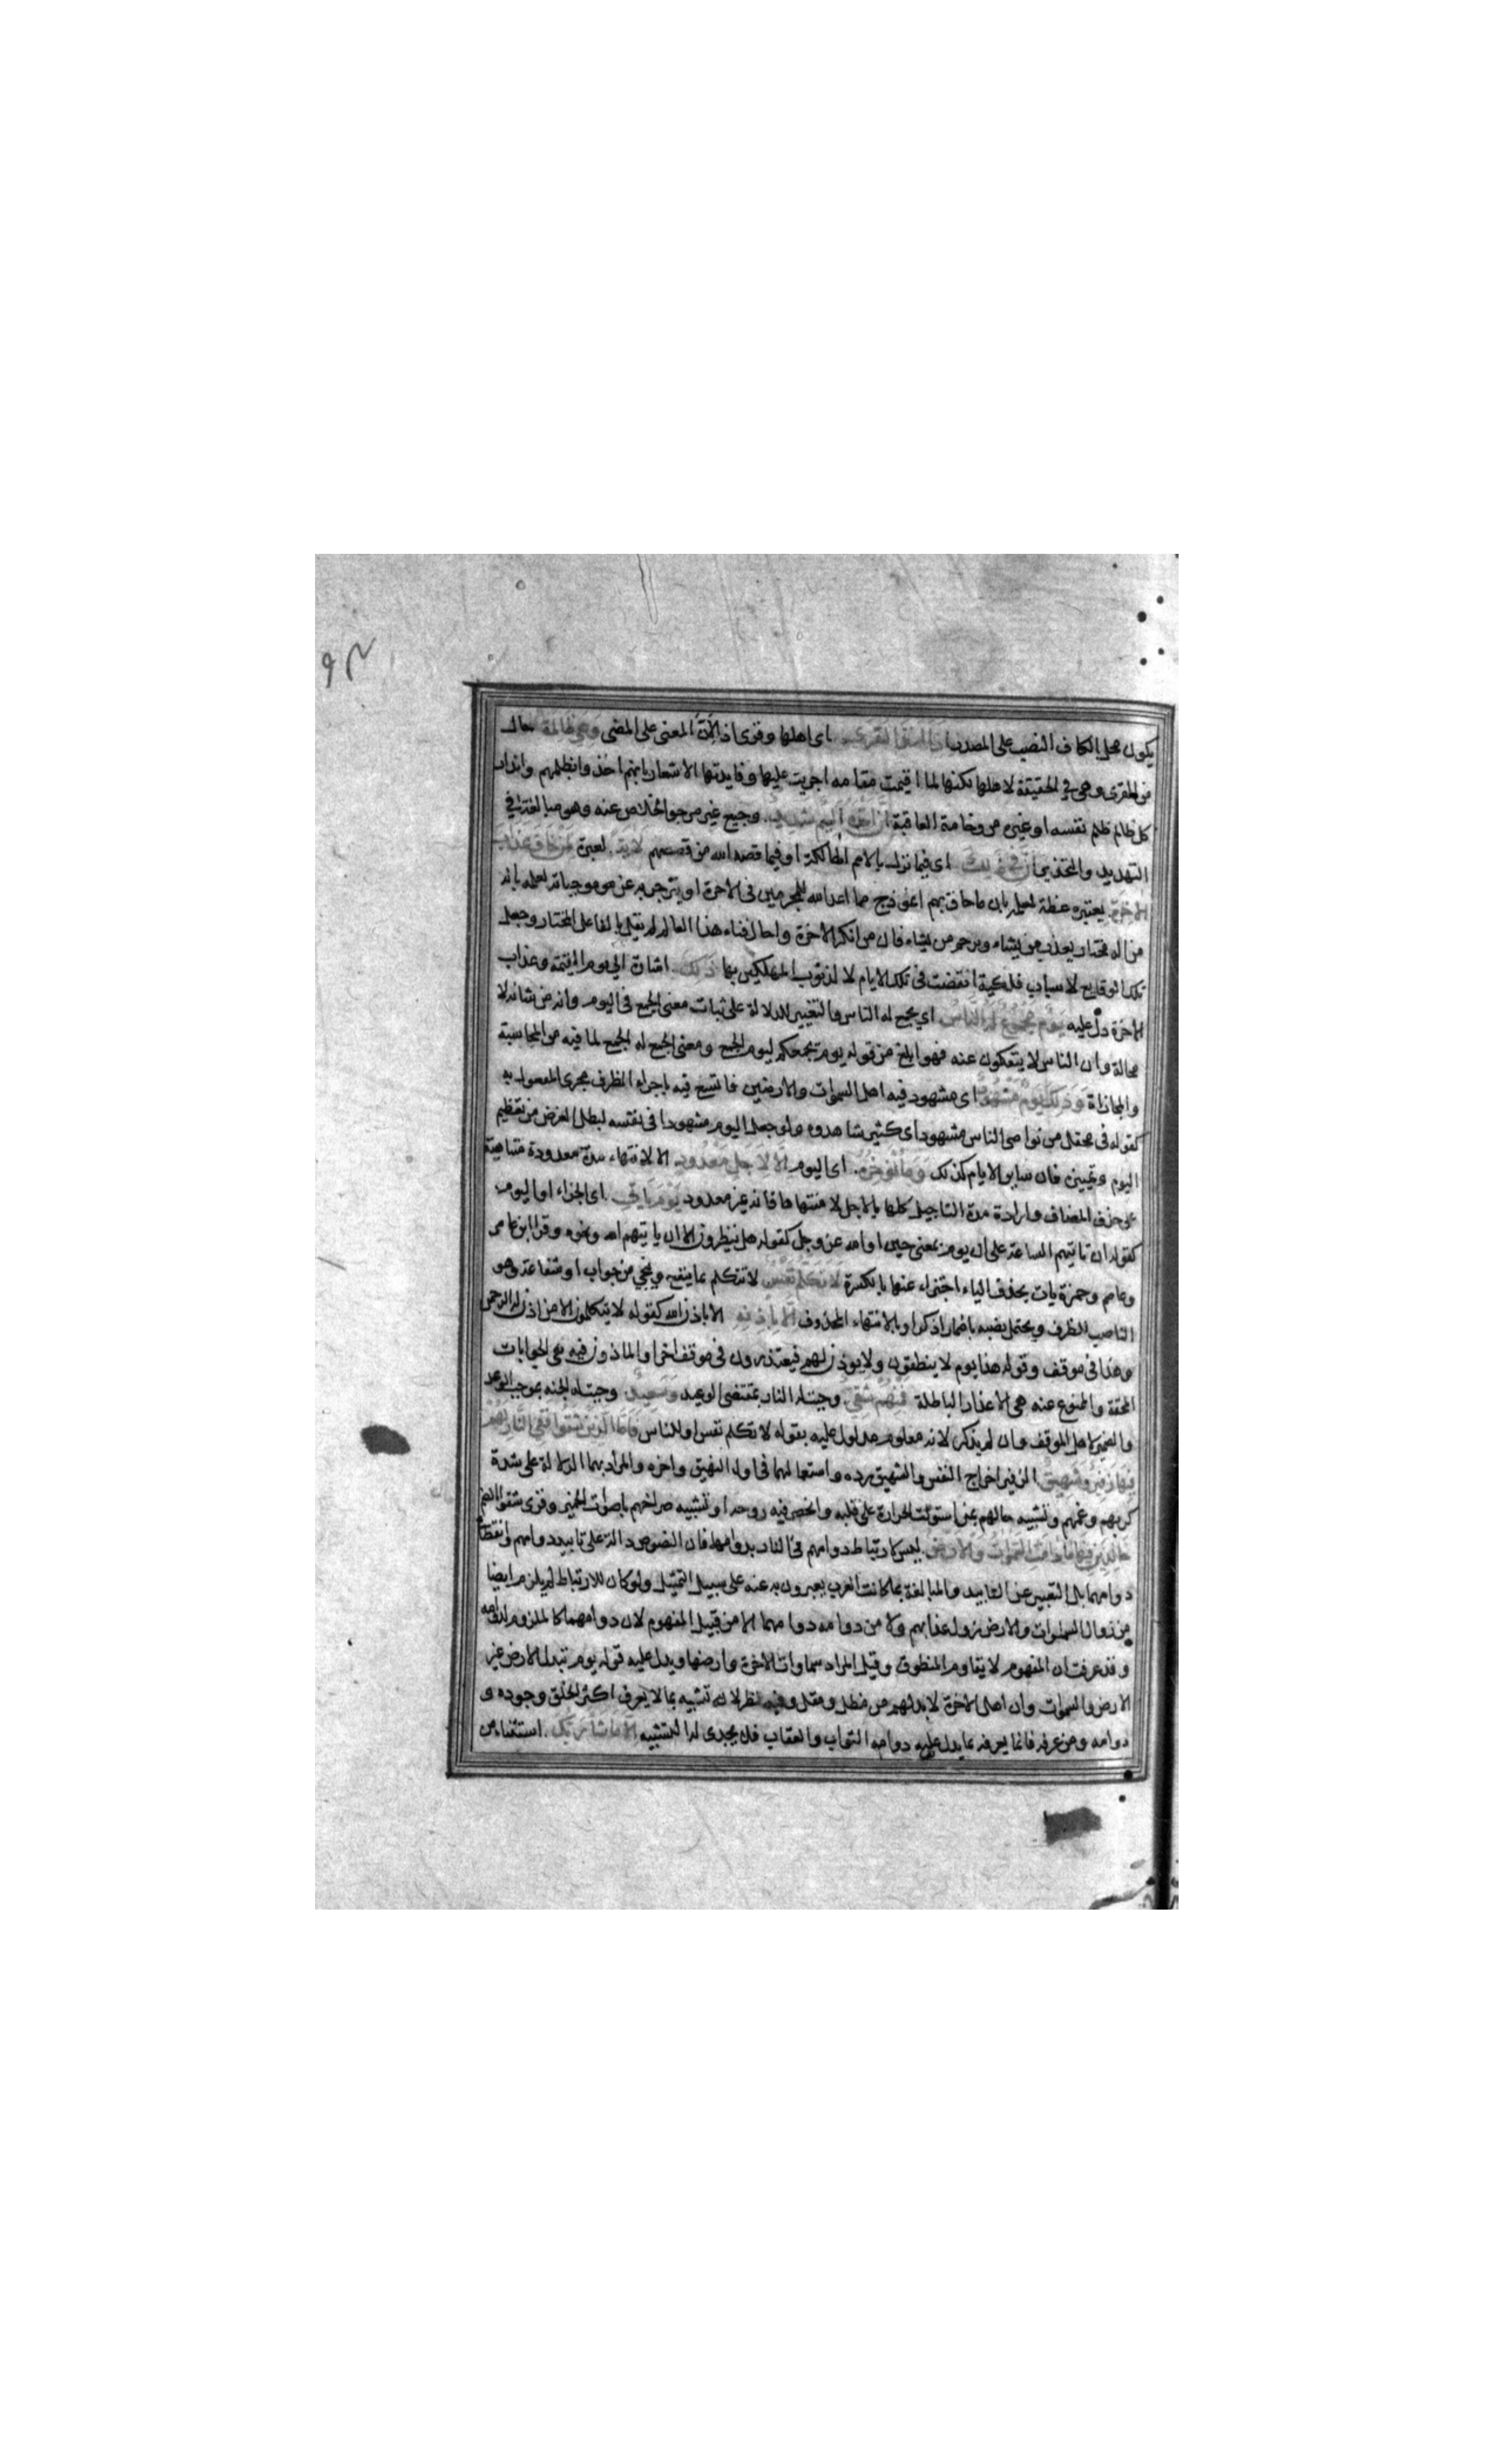 يكون محل الكاف النصب على المصدر اذا اخذ القرى اى اهلها وقرى اذ لان المعنى على المضى وهى ظالمة حال
من القرى وهى فى الحقيقة لاهلها لكنها لما اقيمت مقامه اجريت عليها وفايدتها الاشعار بانهم اخذوا بظلمهم وانذار
كل ظالم ظلم نفسه او غيره من وخامة العاقبة ان اخذه اليم شديد وجيع غير مرجو الخلاص عنه وهو مبالغة فى
التهديد والتحذير ان فى ذلك اى فيما نزل بالامم الهالكة او فيما قصه الله من قصصهم لاية لعبرة لمن خاف عذاب
الاخرة يعتبره عظة لعلمه بان ما حاق بهم انموذج مما اعد الله للمجرمين فى الاخرة او ينزجر به عن موجباته لعلمه بانه
من اله مختار يعذب من يشاء ويرحم من يشاء فان من انكر الاخرة واحال فناء هذا العالم لم يقل بالفاعل المختار وجعل
تلك الوقايع لاسباب فلكية اتفقت فى تلك الايام لا لذنوب المهلكين بها ذلك اشارة الى يوم القيمة وعذاب
الاخرة دل عليه يوم مجموع له الناس اى يجمع له الناس والتغيير للدلالة على ثبات معنى الجمع فى اليوم وانه من شانه لا
محالة وان الناس لا ينفكون عنه فهو ابلغ من قوله يوم يجمعكم ليوم الجمع ومعنى الجمع له الجمع لما فيه من المحاسبة
والمجازاة وذلك يوم مشهود اى مشهود فيه اهل السموات والارضين فاتسع فيه باجراء الظرف مجرى المفعول به
كقوله فى محفل من نواصى الناس مشهود اى كثير شاهدوه ولو جعل اليوم مشهودا فى نفسه لبطل الغرض من تعظيم
اليوم وتمييزه فان ساير الايام كذلك وما نؤخره اى اليوم الا لاجل معدود الا لانتهاء مدة معدودة متناهية
على حذف المضاف وارادة مدة التاجيل كلها بالاجل لا منتهاها فانه غير معدود يوم ياتى اى الجزاء او اليوم
كقوله ان تاتيهم الساعة على ان يوم بمعنى حين او الله عز وجل كقوله هل ينظرون الا ان ياتيهم الله ونحوه وقرا ابن عامر
وعاصم وحمزة يات بحذف الياء اجتزاء عنها بالكسرة لا تكلم نفس لا تتكلم بما ينفع وينجى من جواب او شفاعة وهو
الناصب للظرف ويحتمل نصبه باضمار اذكر او بالانتهاء المحذوف الا باذنه الا باذن الله كقوله لا يتكلمون الا من اذن له الرحمن
وهذا فى موقف وقوله هذا يوم لا ينطقون ولا يوذن لهم فيعتذرون فى موقف اخر او الماذون فيه هى الجوابات
المحقة والممنوع عنه هى الاعذار الباطلة فمنهم شقى وجبت له النار بمقتضى الوعيد وسعيد وجبت له الجنه بموجب الوعد
والضمير لاهل الموقف وان لم يذكر لانه معلوم مدلول عليه بقوله لا تكلم نفس او للناس فاما الذين شقوا ففى النار لهم
فيها زفير وشهيق الزفير اخراج النفس والشهيق رده واستعمالهما فى اول النهيق واخره والمراد بهما الدلالة على شدة
كربهم وغمهم وتشبيه حالهم بمن استولت الحرارة على قلبه وانحصر فيه روحه او تشبيه صراخهم باصوات الحمير وقرى شقوا بالضم
خالدين فيها ما دامت السموات والارض ليس لارتباط دوامهم فى النار بدوامهما فان النصوص دالة على تابيد دوامهم وانقطاع
دوامهما بل التعبير عن التابيد والمبالغة بما كانت العرب يعبرون به عنه على سبيل التمثيل ولو كان للارتباط لم يلزم ايضا
من زوال السموات والارض زوال عذابهم ولا من دوامه دوامهما الا من قبيل المفهوم لان دوامهما كالملزوم لدوامه
وقد عرفت ان المفهوم لا يقاوم المنطوق وقيل المراد سماوات الاخرة وارضها ويدل عليه قوله يوم تبدل الارض غير
الارض والسموات وان اهل الاخرة لا بد لهم من مظل ومقل وفيه نظر لانه تشبيه بما لا يعرف اكثر الخلق وجوده و
دوامه ومن عرفه فانما يعرفه بما يدل عليه دوام الثواب والعقاب فلا يجدى له التشبيه الا ما شاء ربك استثناء من